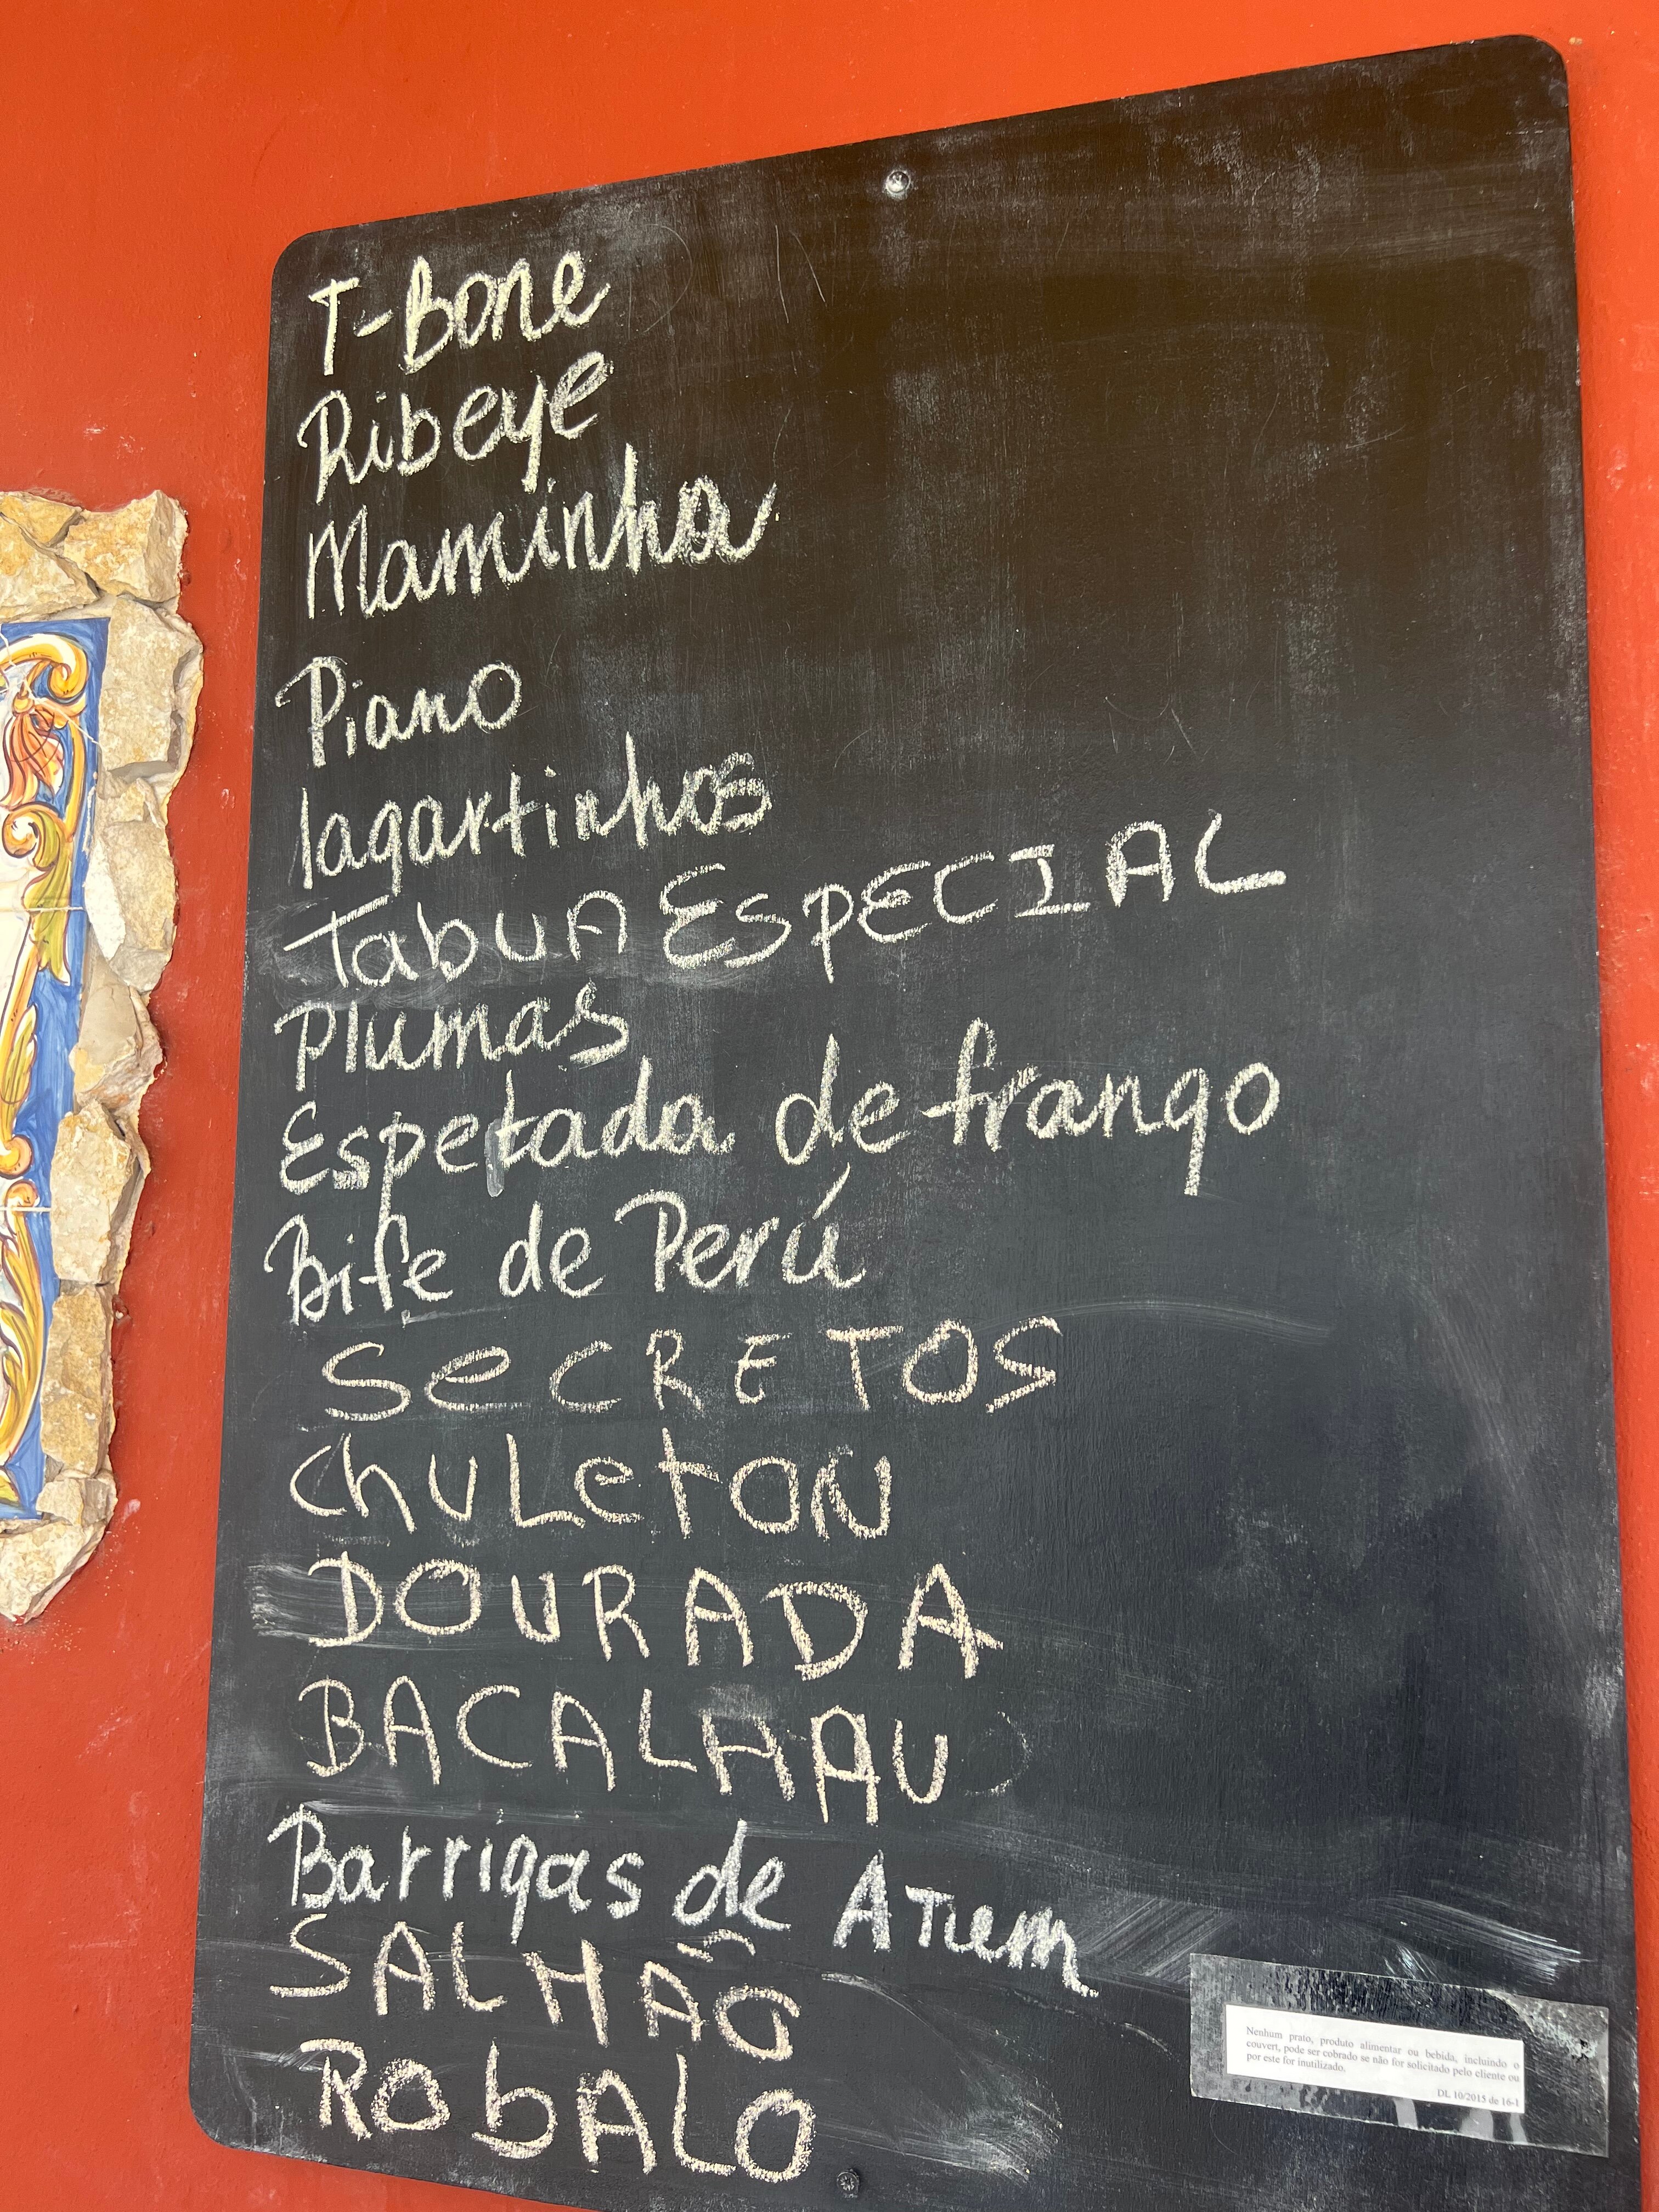 T-Bone
Ribeye
Maminha
Piano
lagartinhos
Tabua ESPECIAL
Plumas
Espetada de frango
Bife de Perú
SeCRETOS
ChuLetON
DOURADA
BACALHAU
Barrigas de Atum
SALMÃO
RObALO
Nenhum prato, produto alimentar ou bebida, incluindo o
couvert, pode ser cobrado se não for solicitado pelo cliente ou
por este for inutilizado.
DL 10/2015 de 16-1